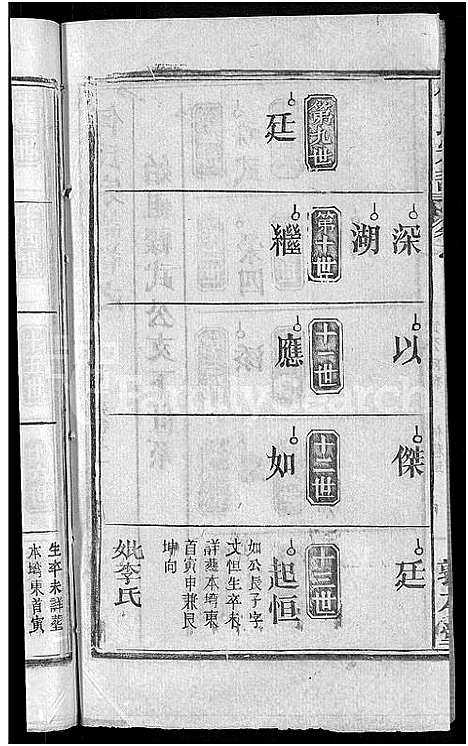 深
湖
以
傑
廷
第九世
第十世
十一世
十二世
十三世
廷
繼
應
如
起恒
如公長子字
文恒生卒未
詳葬本塆東
首寅申兼艮
坤向
妣李氏
生卒未詳葬
本塆東首寅
FamilySearch